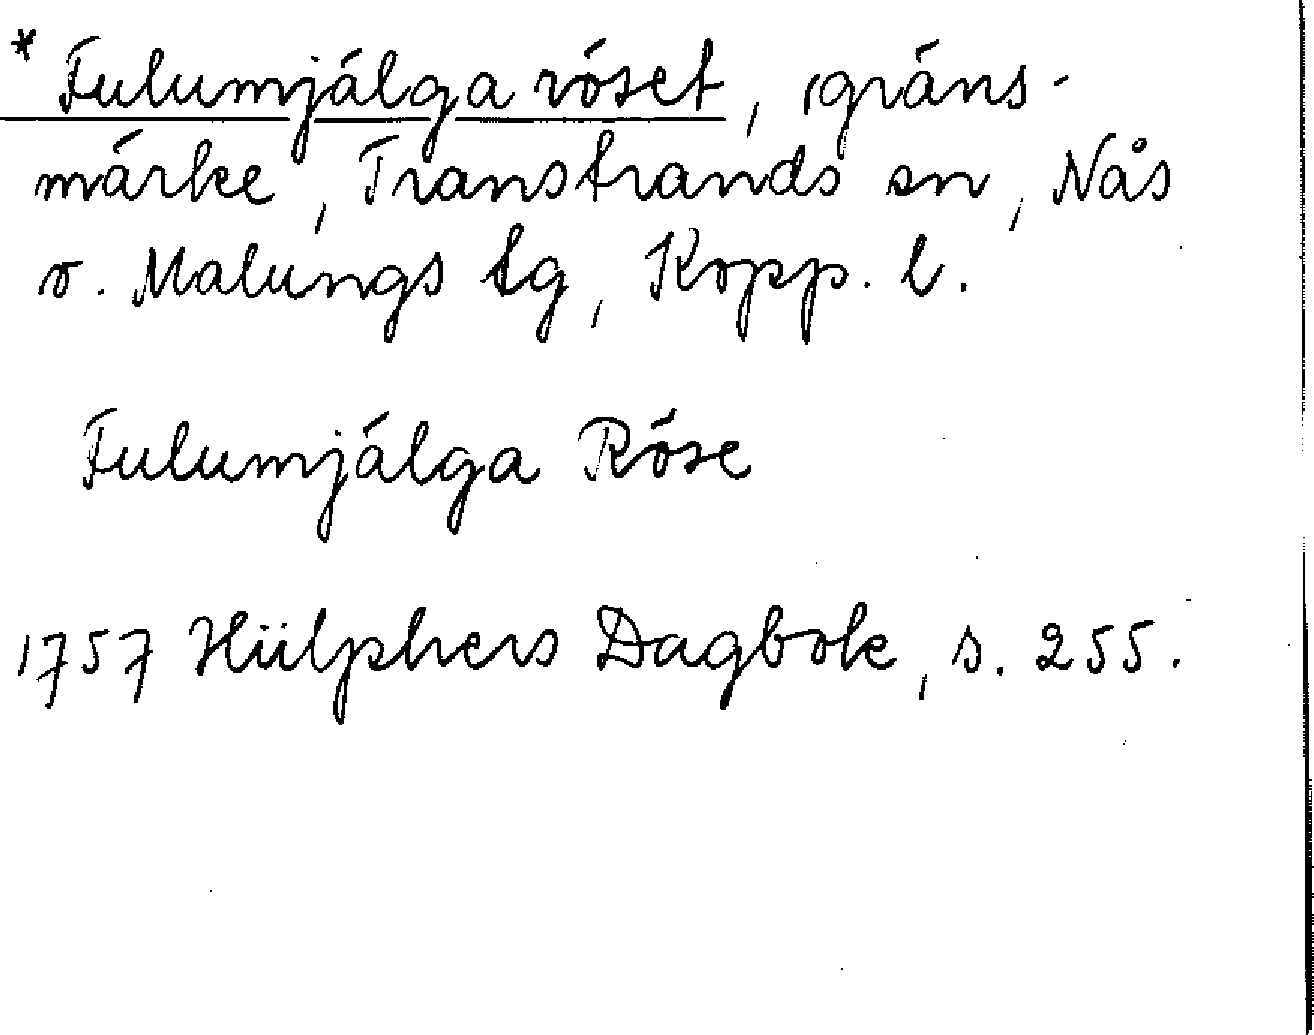 * Fulumjälga röset, gräns-
märke, Transtrands sn, Nås
o. Malungs tg, Kopp. l.
Fulumjälga Röse
1757 Hülphers Dagbok, s. 255.